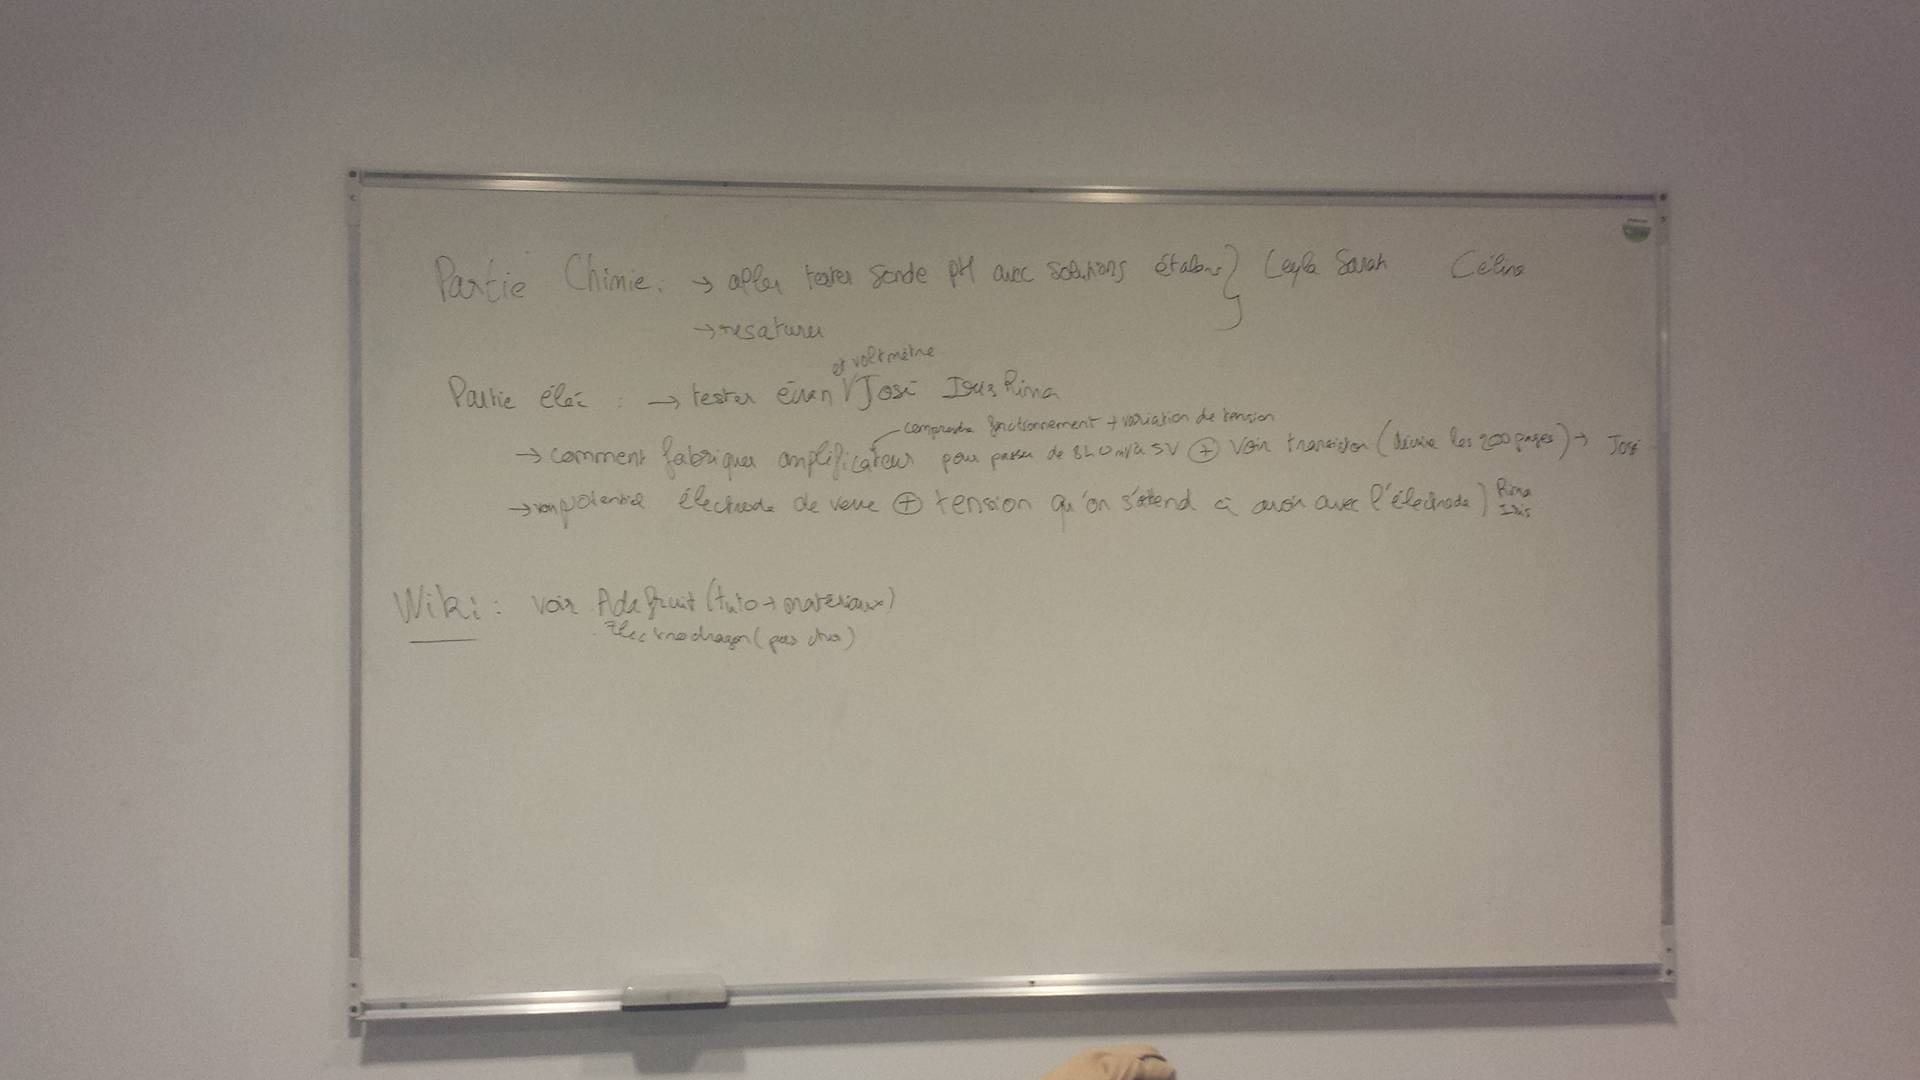 Partie Chimie : → aller tester sonde pH avec solutions étalons } Leyla Sarah Célina
→ resaturer
et voltmètre
Partie élec : → tester écran José Iris Rima
comprendre fonctionnement + variation de tension
→ comment fabriquer amplificateur pour passer de 840mV à 5V ⊕ voir transistor ( les 200 pages) → José
→ potentiel électrode de verre ⊕ tension qu'on s'attend à avoir avec l'électrode ) Rima
Iris
Wiki : voir Adafruit (tuto + matériaux)
Electrodragon (pas cher)